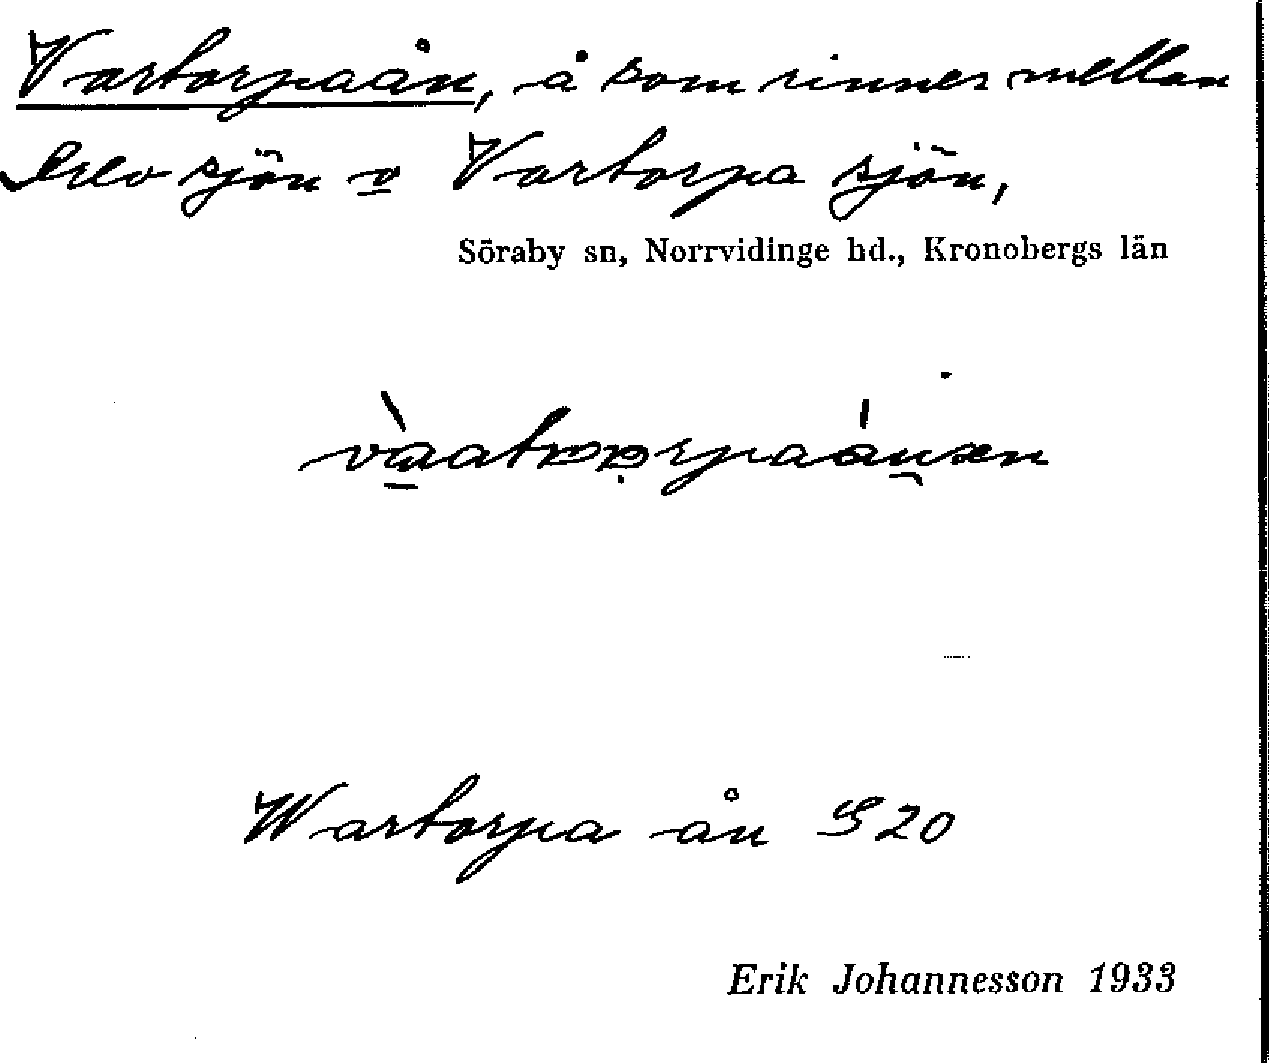 Vartorpaån, å som rinner mellan
sjön o Vartorpa sjön,
Söraby sn, Norrvidinge hd., Kronobergs län
Wartorpa ån S 20
Erik Johannesson 1933